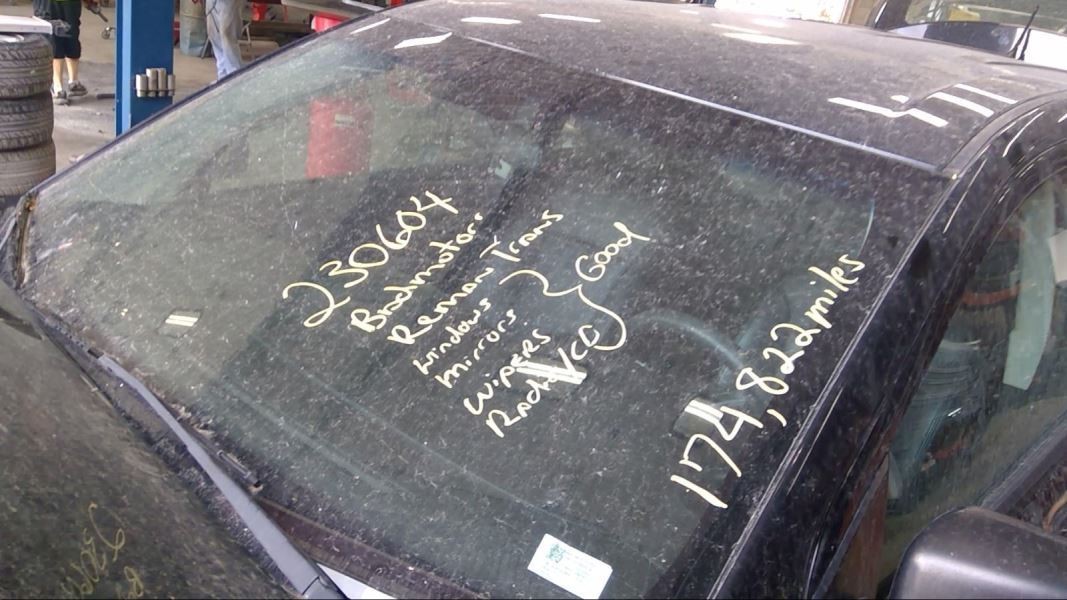 230604
Bad motor
Reman Trans
windows
mirrors
Wipers
Radio/CD
Good
174,822 miles